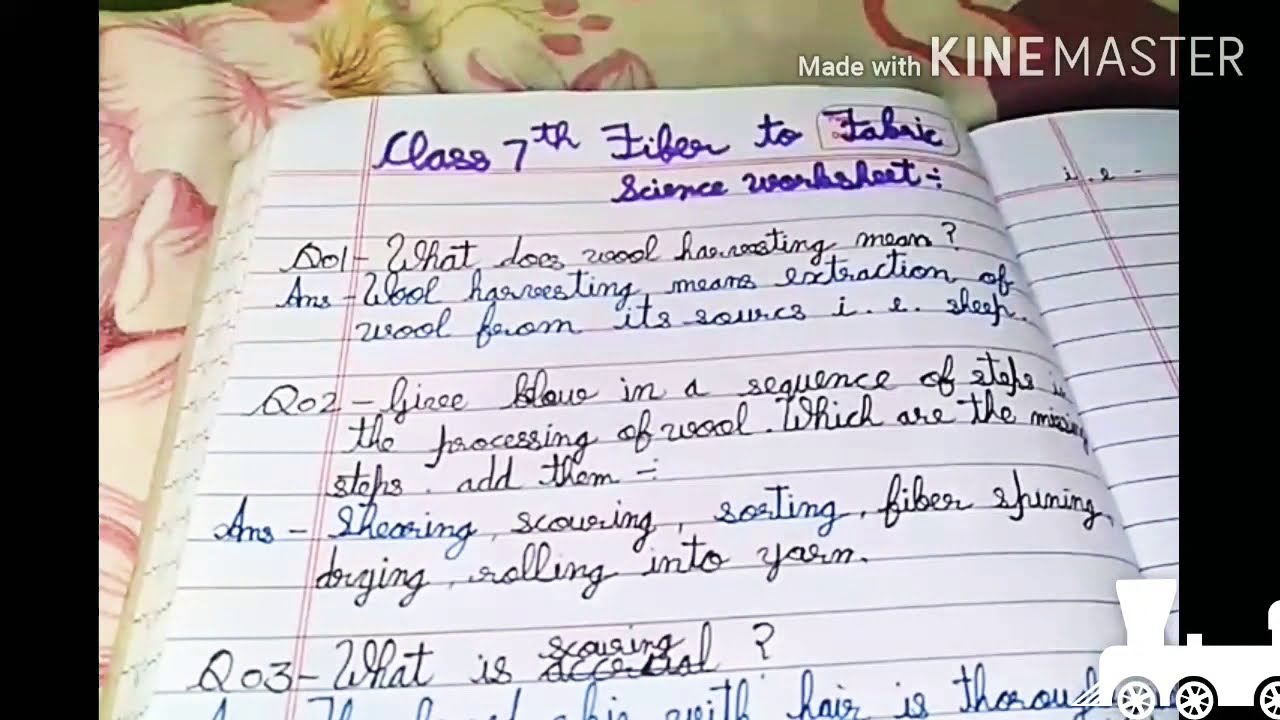 Made with KINEMASTER
Class 7th Fiber to Fabric
Science worksheet ÷
i.e -
Q01 - What does wool harvesting mean?
Ans - Wool harvesting means extraction of
wool from its sources i. e. sheep.
Q02 - Give blow in a sequence of steps in
the processing of wool. Which are the missing
steps. add them ÷
Ans - Shearing, scouring, sorting, fiber spuning,
drying, rolling into yarn.
Q03 - What is scouring ?
with hair is